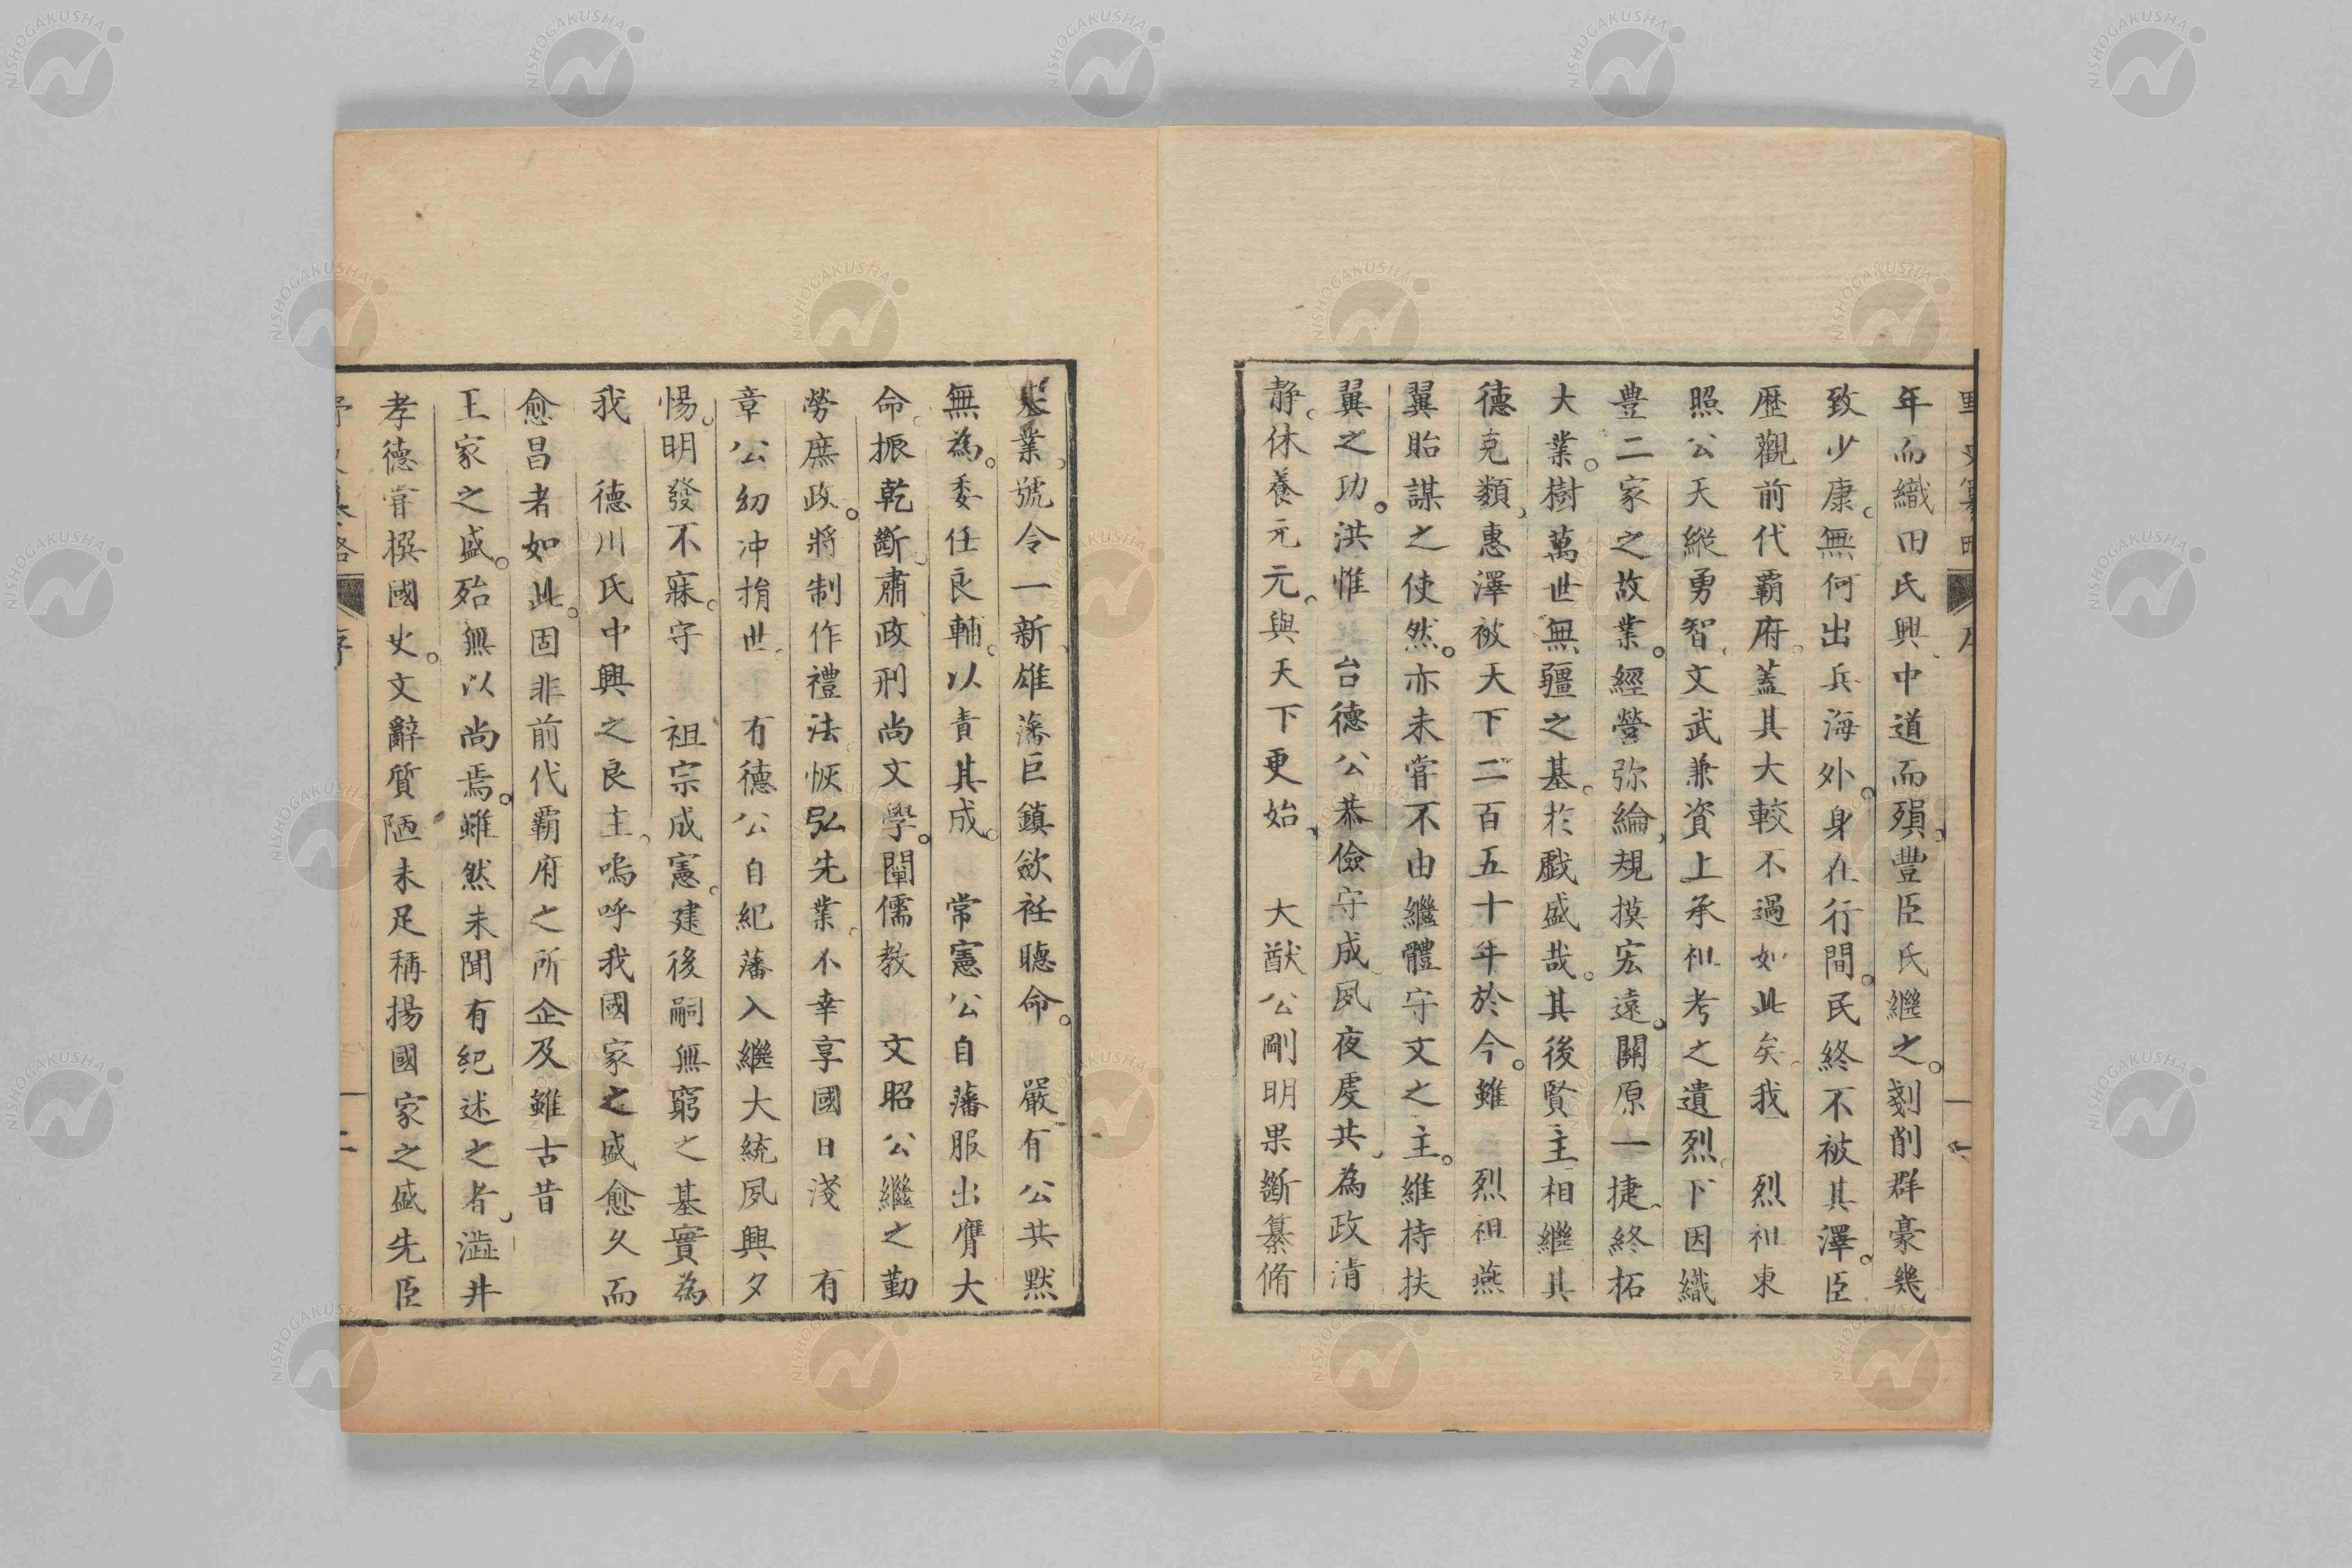 年而織田氏興中道而殞豐臣氏繼之剗削群豪幾
致少康無何出兵海外身在行間民終不被其澤臣
歴觀前代霸府蓋其大較不過如此矣我 烈祖東
照公天縱勇智文武兼資上承祖考之遺烈下因織
豊二家之故業經營弥綸規摸宏遠關原一捷終拓
大業樹萬世無疆之基於戲盛哉其後賢主相繼其
德克類惠澤被天下二百五十年於今雖 烈祖燕
翼貽謀之使然亦未甞不由繼體守文之主維持扶
翼之功洪惟 台德公恭儉守成夙夜虔共為政清
静休養元元與天下更始 大猷公剛明果斷纂脩
業號令一新雄藩巨鎮斂衽聽命 嚴有公共黙
無為委任良輔以責其成 常憲公自藩服出膺大
命振乾斷肅政刑尚文學闡儒教 文昭公繼之勤
勞庶政將制作禮法恢弘先業不幸享國日淺 有
章公幼冲捐世 有德公自紀藩入繼大統夙興夕
惕明發不寐守 祖宗成憲建後嗣無窮之基實為
我 德川氏中興之良主嗚呼我國家之盛愈久而
愈昌者如此固非前代霸府之所企及雖古昔
王家之盛殆無以尚焉雖然未聞有紀述之者澁井
孝德甞撰國史文辭質陋未足稱揚國家之盛先臣
序
二